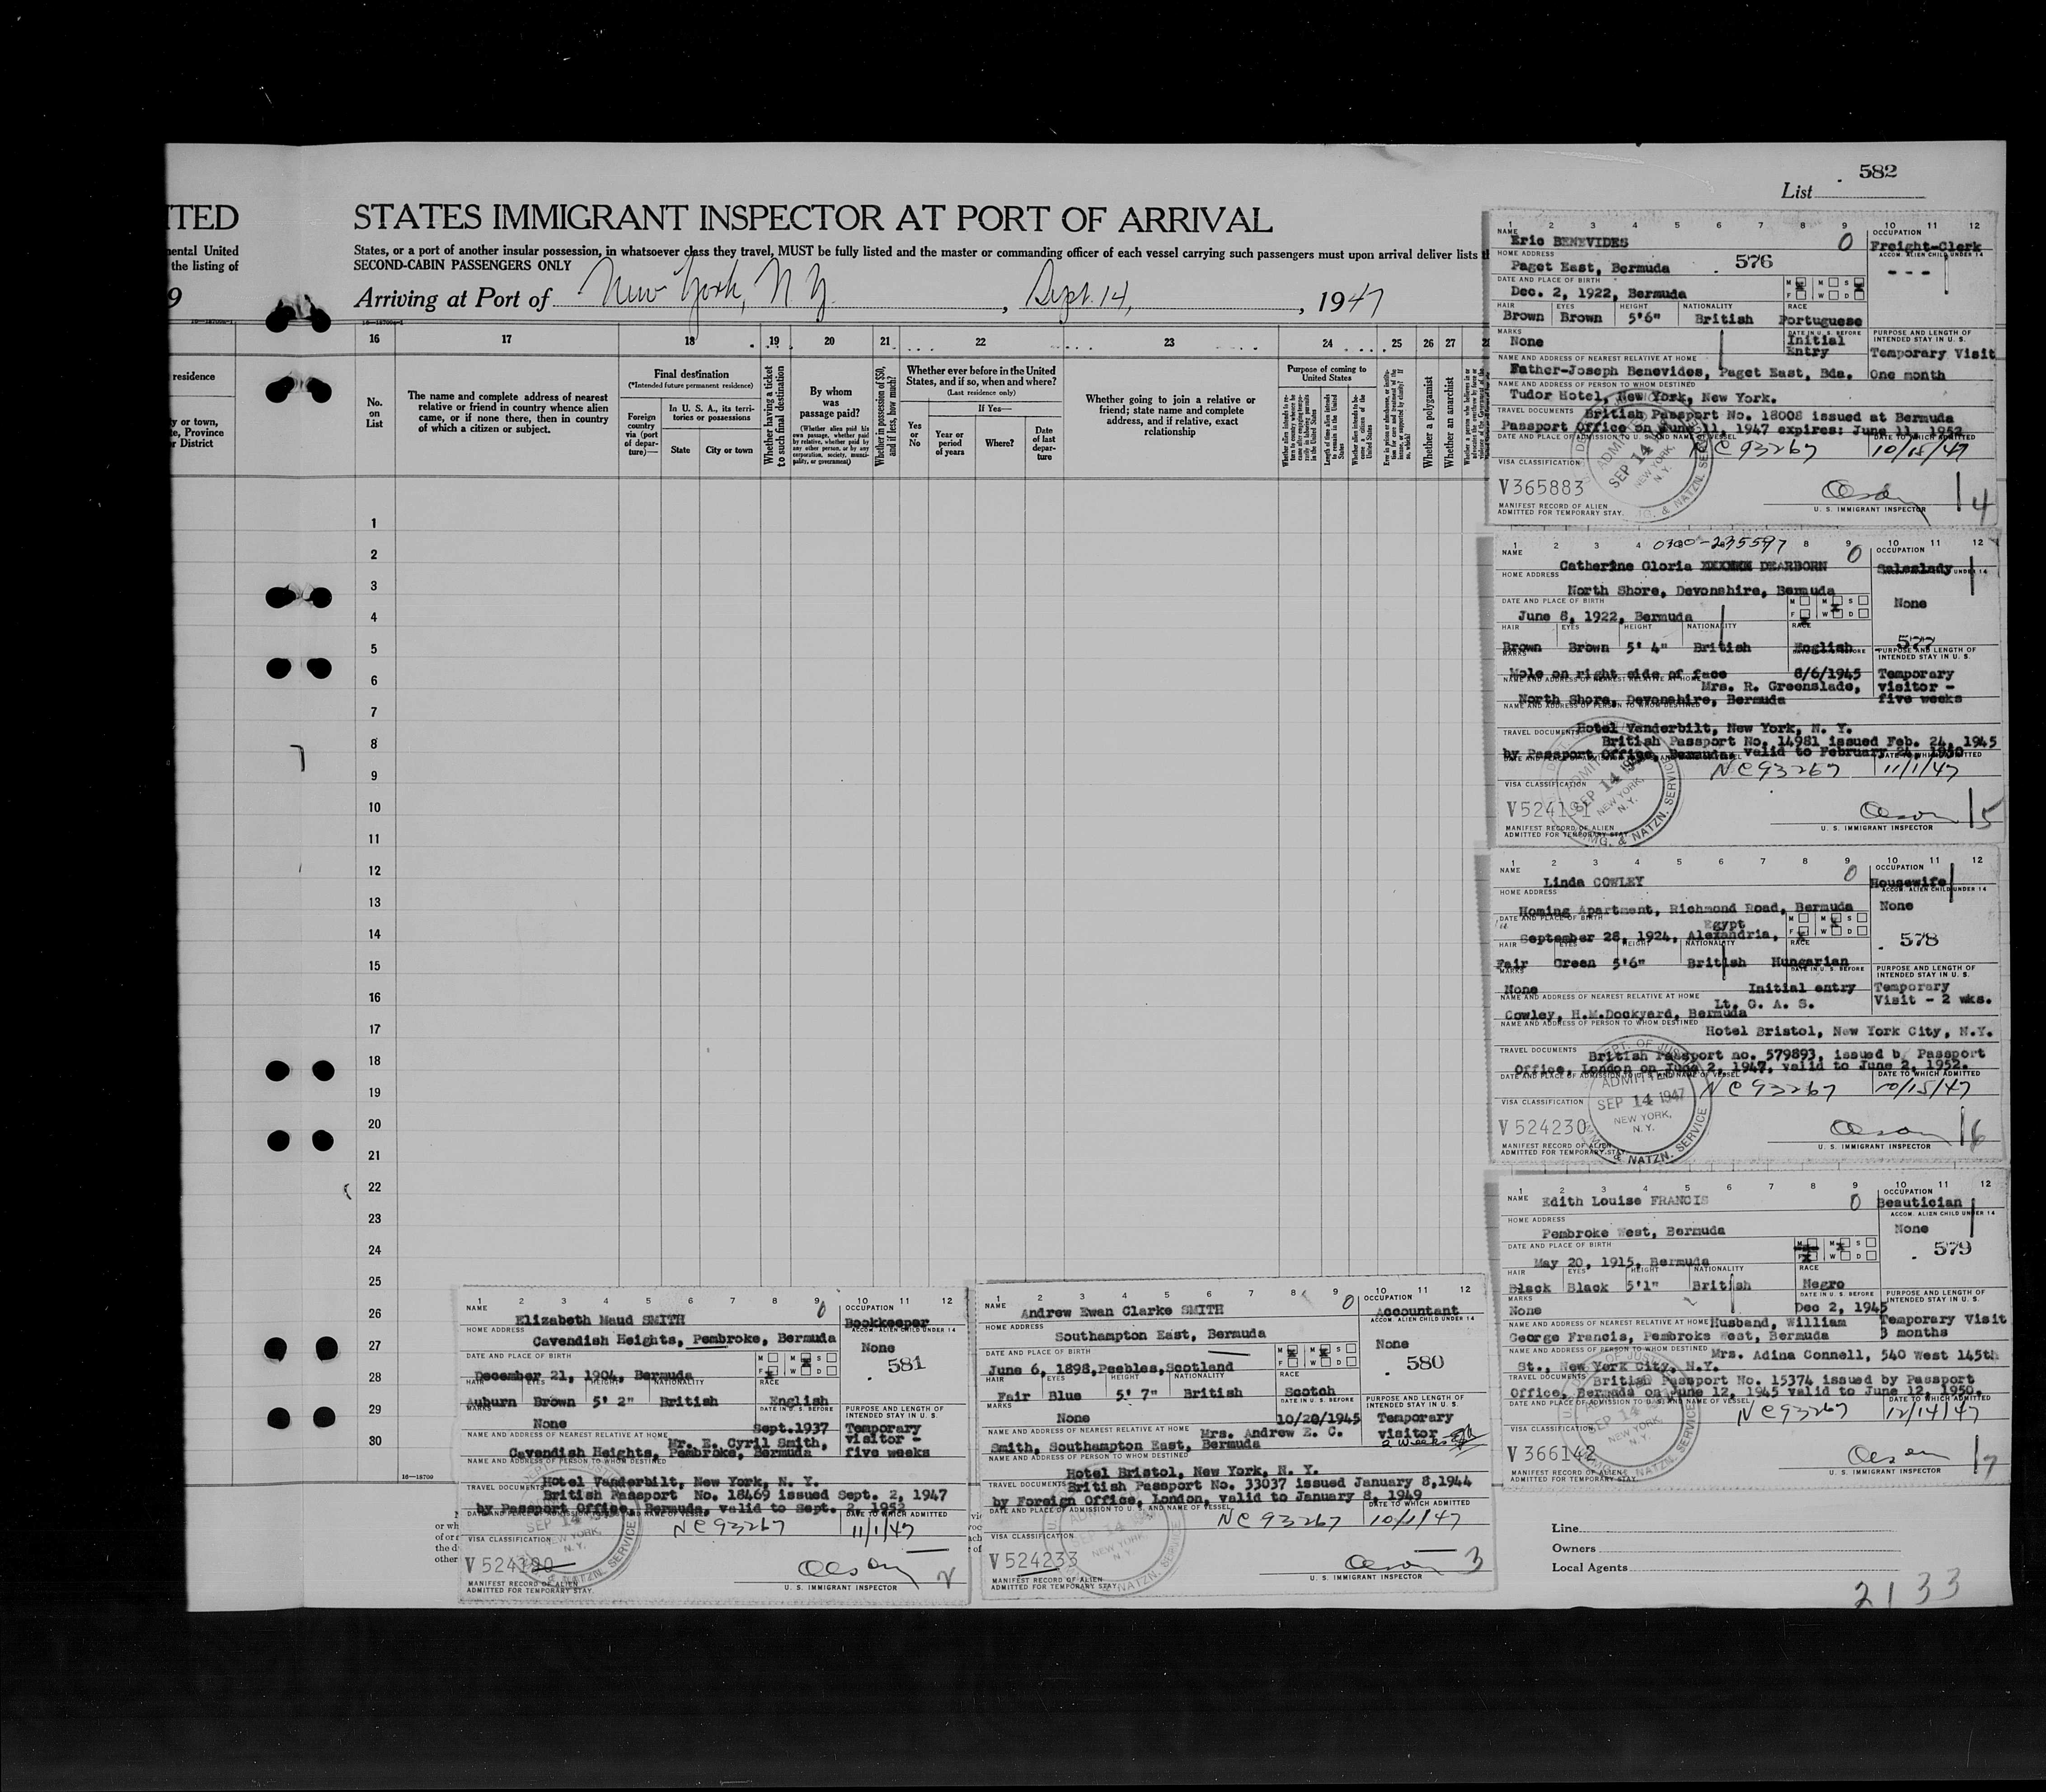 582
List
ITED
STATES IMMIGRANT INSPECTOR AT PORT OF ARRIVAL
nental United
the listing of
States, or a port of another insular possession, in whatsoever class they travel, MUST be fully listed and the master or commanding officer of each vessel carrying such passengers must upon arrival deliver lists
SECOND-CABIN PASSENGERS ONLY
9
Arriving at Port of New York, N.Y. , Sept. 14, , 1947
16 17 18 19 20 21 22 23 24 25 26 27
residence
y or town,
e, Province
r District
No.
on
List
The name and complete address of nearest
relative or friend in country whence alien
came, or if none there, then in country
of which a citizen or subject.
Final destination
(*Intended future permanent residence)
Foreign
country
via (port
of depar-
ture)—
In U. S. A., its terri-
tories or possessions
State
City or town
Whether having a ticket
to such final destination
By whom
was
passage paid?
(Whether alien paid his
own passage, whether paid
by relative, whether paid by
any other person, or by any
corporation, society, munici-
pality, or government)
Whether in possession of $50,
and if less, how much?
Whether ever before in the United
States, and if so, when and where?
(Last residence only)
Yes
or
No
If Yes—
Year or
period
of years
Where?
Date
of last
depar-
ture
Whether going to join a relative or
friend; state name and complete
address, and if relative, exact
relationship
Purpose of coming to
United States
Whether a polygamist
Whether an anarchist
1
2
3
4
5
6
7
8
9
10
11
12
13
14
15
16
17
18
19
20
21
22
23
24
25
26
27
28
29
30
16—18700
1 2 3 4 5 6 7 8 9 10 11 12
NAME
Eric BENEVIDES
0
OCCUPATION
Freight-Clerk
ACCOM. ALIEN CHILD UNDER 14
- - -
HOME ADDRESS
Paget East, Bermuda
576
DATE AND PLACE OF BIRTH
Dec. 2, 1922, Bermuda
M M S
F W D
HAIR EYES HEIGHT NATIONALITY RACE
Brown Brown 5'6" British Portuguese
MARKS
None
DATE IN U. S. BEFORE
Initial
Entry
PURPOSE AND LENGTH OF
INTENDED STAY IN U. S.
Temporary Visit
One month
NAME AND ADDRESS OF NEAREST RELATIVE AT HOME
Father-Joseph Benevides, Paget East, Bda.
NAME AND ADDRESS OF PERSON TO WHOM DESTINED
Tudor Hotel, New York, New York.
TRAVEL DOCUMENTS
British Passport No. 18008 issued at Bermuda
Passport Office on June 11, 1947 expires: June 11, 1952
DATE AND PLACE OF ADMISSION TO U. S. AND NAME OF VESSEL
DATE TO WHICH ADMITTED
NC 93267
10/15/47
VISA CLASSIFICATION
V365883
SEP 14
NEW YORK,
N. Y.
MANIFEST RECORD OF ALIEN
ADMITTED FOR TEMPORARY STAY.
Olson
U. S. IMMIGRANT INSPECTOR
4
1 2 3 4 8 9 10 11 12
0300-235597
NAME
Catherine Gloria DEARBORN
0
OCCUPATION
Saleslady
HOME ADDRESS
North Shore, Devonshire, Bermuda
None
DATE AND PLACE OF BIRTH
June 8, 1922, Bermuda
M M S
F W D
HAIR EYES HEIGHT NATIONALITY RACE
577
Brown Brown 5' 4" British English
MARKS
PURPOSE AND LENGTH OF
INTENDED STAY IN U. S.
Mole on right side of face 8/6/1945
Temporary
visitor -
five weeks
NAME AND ADDRESS OF NEAREST RELATIVE AT HOME
Mrs. R. Greenslade,
North Shore, Devonshire, Bermuda
NAME AND ADDRESS OF PERSON TO WHOM DESTINED
Hotel Vanderbilt, New York, N. Y.
TRAVEL DOCUMENTS
British Passport No. 14981 issued Feb. 24, 1945
by Passport Office, Bermuda, valid to February 24, 1950
NC 93267
11/1/47
VISA CLASSIFICATION
SEP 14
NEW YORK,
N. Y.
MANIFEST RECORD OF ALIEN
ADMITTED FOR TEMPORARY STAY.
Olson
U. S. IMMIGRANT INSPECTOR
5
1 2 3 4 5 6 7 8 9 10 11 12
NAME
Linda COWLEY
0
OCCUPATION
Housewife
ACCOM. ALIEN CHILD UNDER 14
HOME ADDRESS
Homing Apartment, Richmond Road, Bermuda
None
DATE AND PLACE OF BIRTH
Egypt
September 28, 1924, Alexandria,
M M S
F W D
578
HAIR EYES HEIGHT NATIONALITY RACE
Fair Green 5'6" British Hungarian
MARKS
DATE IN U. S. BEFORE
PURPOSE AND LENGTH OF
INTENDED STAY IN U. S.
None Initial entry
Temporary
Visit - 2 wks.
NAME AND ADDRESS OF NEAREST RELATIVE AT HOME
Lt. G. A. S.
Cowley, H.M.Dockyard, Bermuda
NAME AND ADDRESS OF PERSON TO WHOM DESTINED
Hotel Bristol, New York City, N.Y.
TRAVEL DOCUMENTS
British Passport no. 579893, issued by Passport
Office, London on June 2, 1947, valid to June 2, 1952.
DATE AND PLACE OF ADMISSION TO U. S. AND NAME OF VESSEL
DATE TO WHICH ADMITTED
NC 93267
10/15/47
VISA CLASSIFICATION
V 524230
ADMITTED
SEP 14 1947
NEW YORK,
N. Y.
IMMG. & NATZN. SERVICE
MANIFEST RECORD OF ALIEN
ADMITTED FOR TEMPORARY STAY
Olson
U. S. IMMIGRANT INSPECTOR
6
1 2 3 4 5 6 7 8 9 10 11 12
NAME
Edith Louise FRANCIS
0
OCCUPATION
Beautician
ACCOM. ALIEN CHILD UNDER 14
HOME ADDRESS
Pembroke West, Bermuda
None
579
DATE AND PLACE OF BIRTH
May 20, 1915, Bermuda
M M S
F W D
HAIR EYES HEIGHT NATIONALITY RACE
Black Black 5'1" British Negro
MARKS
None
DATE IN U. S. BEFORE
Dec 2, 1945
PURPOSE AND LENGTH OF
INTENDED STAY IN U. S.
Temporary Visit
3 months
NAME AND ADDRESS OF NEAREST RELATIVE AT HOME
Husband, William
George Francis, Pembroke West, Bermuda
NAME AND ADDRESS OF PERSON TO WHOM DESTINED
Mrs. Adina Connell, 540 West 145th
St., New York City, N.Y.
TRAVEL DOCUMENTS
British Passport No. 15374 issued by Passport
Office, Bermuda on June 12, 1945 valid to June 12, 1950.
DATE AND PLACE OF ADMISSION TO U. S. AND NAME OF VESSEL
DATE TO WHICH ADMITTED
NC 93267
12/14/47
VISA CLASSIFICATION
V 366142
SEP 14
NEW YORK,
N. Y.
MANIFEST RECORD OF ALIEN
ADMITTED FOR TEMPORARY STAY.
Olson
U. S. IMMIGRANT INSPECTOR
7
1 2 3 4 5 6 7 8 9 10 11 12
NAME
Elizabeth Maud SMITH
0
OCCUPATION
Bookkeeper
ACCOM. ALIEN CHILD UNDER 14
HOME ADDRESS
Cavendish Heights, Pembroke, Bermuda
None
581
DATE AND PLACE OF BIRTH
December 21, 1904, Bermuda
M M S
F W D
HAIR EYES HEIGHT NATIONALITY RACE
Auburn Brown 5' 2" British English
MARKS
DATE IN U. S. BEFORE
PURPOSE AND LENGTH OF
INTENDED STAY IN U. S.
None Sept.1937
Temporary
visitor -
five weeks
NAME AND ADDRESS OF NEAREST RELATIVE AT HOME
Mr. E. Cyril Smith,
Cavendish Heights, Pembroke, Bermuda
NAME AND ADDRESS OF PERSON TO WHOM DESTINED
Hotel Vanderbilt, New York, N. Y.
TRAVEL DOCUMENTS
British Passport No. 18469 issued Sept. 2, 1947
by Passport Office, Bermuda, valid to Sept. 2, 1952
DATE AND PLACE OF ADMISSION TO U. S. AND NAME OF VESSEL
DATE TO WHICH ADMITTED
NC 93267
11/1/47
VISA CLASSIFICATION
SEP 14
NEW YORK,
N. Y.
MANIFEST RECORD OF ALIEN
ADMITTED FOR TEMPORARY STAY.
Olson
U. S. IMMIGRANT INSPECTOR
2
1 2 3 4 5 6 7 8 9 10 11 12
NAME
Andrew Ewan Clarke SMITH
0
OCCUPATION
Accountant
ACCOM. ALIEN CHILD UNDER 14
HOME ADDRESS
Southampton East, Bermuda
None
580
DATE AND PLACE OF BIRTH
June 6, 1898,Peebles,Scotland
M M S
F W D
HAIR EYES HEIGHT NATIONALITY RACE
Fair Blue 5' 7" British Scotch
MARKS
DATE IN U. S. BEFORE
PURPOSE AND LENGTH OF
INTENDED STAY IN U. S.
None 10/20/1945
Temporary
visitor
2 weeks
NAME AND ADDRESS OF NEAREST RELATIVE AT HOME
Mrs. Andrew E. C.
Smith, Southampton East, Bermuda
NAME AND ADDRESS OF PERSON TO WHOM DESTINED
Hotel Bristol, New York, N. Y.
TRAVEL DOCUMENTS
British Passport No. 33037 issued January 8,1944
by Foreign Office, London, valid to January 8, 1949
DATE AND PLACE OF ADMISSION TO U. S. AND NAME OF VESSEL
DATE TO WHICH ADMITTED
NC 93267
10/1/47
VISA CLASSIFICATION
V 524233
SEP 14
NEW YORK,
N. Y.
MANIFEST RECORD OF ALIEN
ADMITTED FOR TEMPORARY STAY
Olson
U. S. IMMIGRANT INSPECTOR
3
Line
Owners
Local Agents
2133